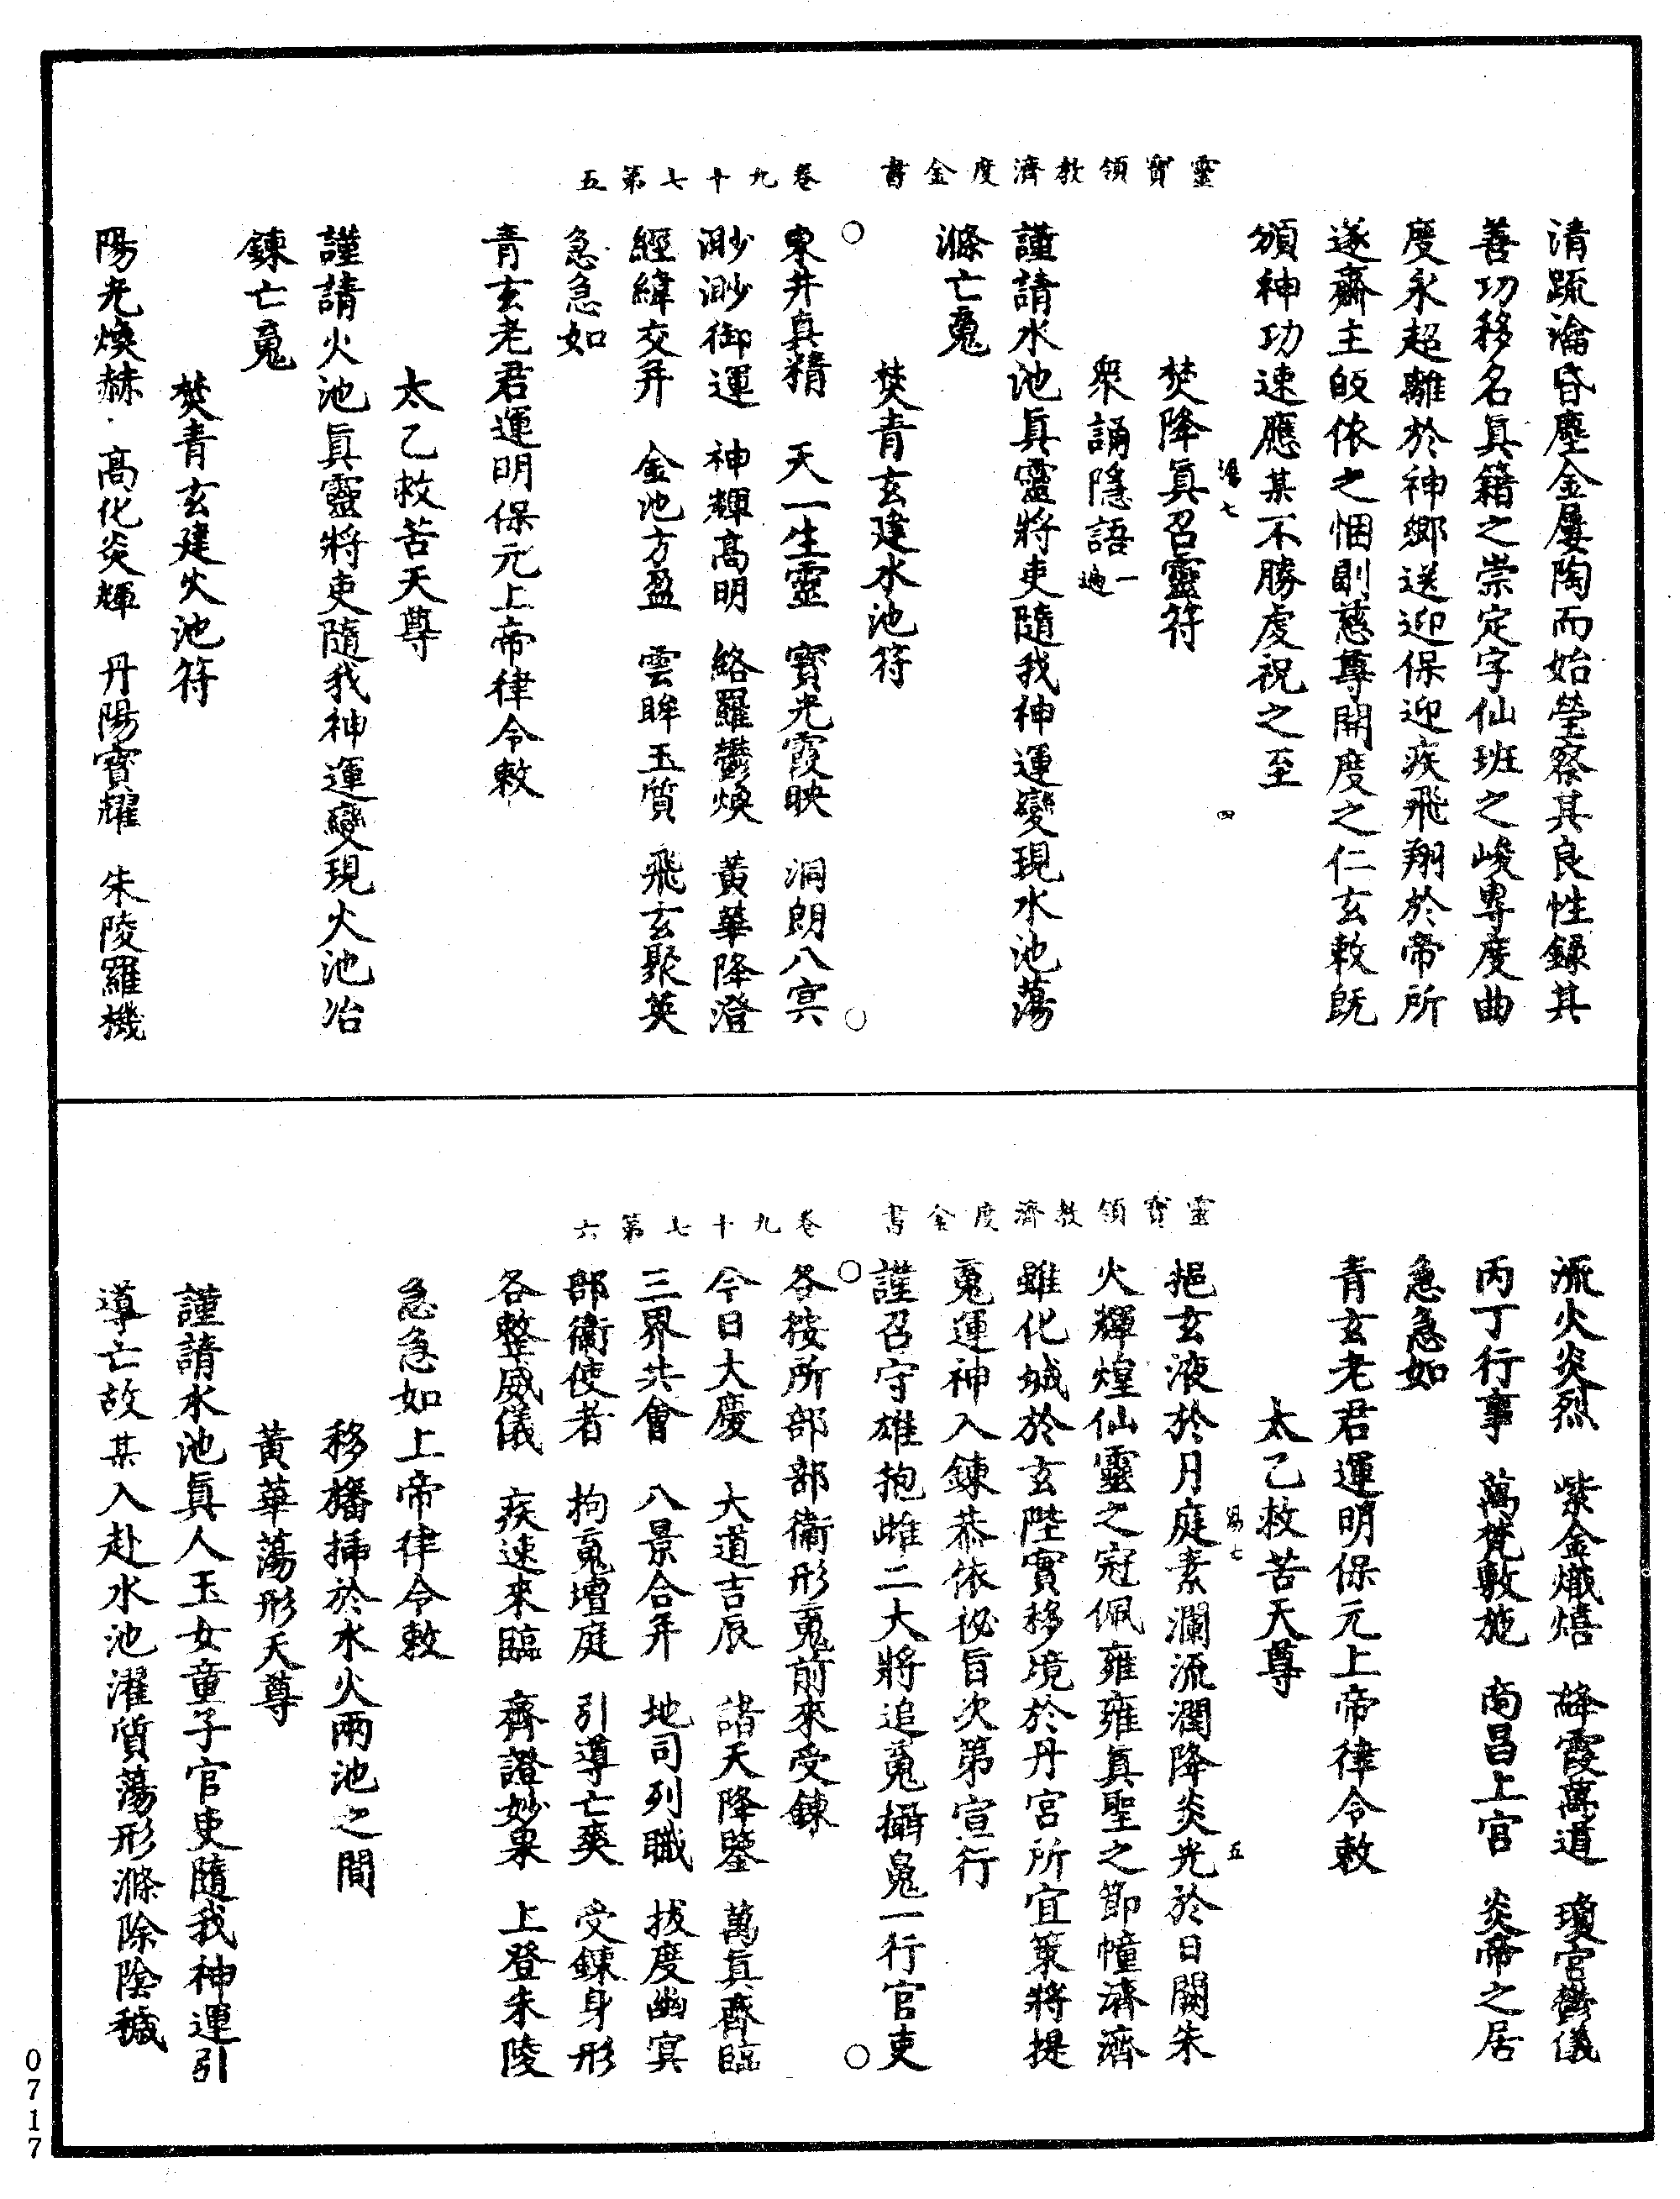 靈寶領教濟度金書　卷九十七第五
清疏瀹昏塵金屢陶而始瑩察其良性錄其
善功移名眞籍之崇定字仙班之峻專度曲
度永超離於神鄉送迎保迎疾飛翔於帝所
遂齋主皈依之悃副慈尊開度之仁玄敕既
頒神功速應某不勝虔祝之至
四
焚降眞召靈符
眾誦隱語一遍
謹請水池眞靈將吏隨我神運變現水池蕩
滌亡䰟
焚青玄建水池符
東井真精　天一生靈　寶光霞映　洞朗八冥
渺渺御運　神輝高明　絡羅鬱煥　黃華降澄
經緯交并　金池方盈　雲眸玉質　飛玄聚英
急急如
青玄老君運明保元上帝律令敕
太乙救苦天尊
謹請火池眞靈將吏隨我神運變現火池冶
鍊亡䰟
焚青玄建火池符
陽光煥赫　高化炎輝　丹陽寶耀　朱陵羅機
靈寶領教濟度金書　卷九十七第六
流火炎烈　紫金熾熺　絳霞萬道　瓊宮鬱儀
丙丁行事　萬梵敷施　南昌上宮　炎帝之居
急急如
青玄老君運明保元上帝律令敕
太乙救苦天尊
五
挹玄液於月庭素瀾流潤降炎光於日闕朱
火輝煌仙靈之冠佩雍雍眞聖之節幢濟濟
雖化城於玄陛實移境於丹宮所宜策將提
䰟運神入鍊恭依祕旨次第宣行
謹召守雄抱雌二大將追䰟攝䰟一行官吏
各按所部部衞形䰟前來受鍊
今日大慶　大道吉辰　諸天降鑒　萬眞齊臨
三界共會　八景合并　地司列職　拔度幽冥
部衞使者　拘䰟壇庭　引導亡爽　受鍊身形
各整威儀　疾速來臨　齊證妙果　上登朱陵
急急如上帝律令敕
移旛插於水火兩池之間
黃華蕩形天尊
謹請水池眞人玉女童子官吏隨我神運引
導亡故某入赴水池濯質蕩形滌除陰穢
0717